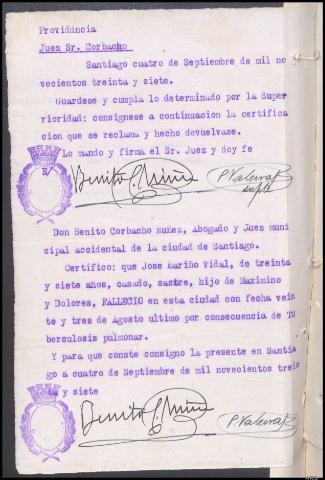 Providencia
Juez Sr. Corbacho
Santiago cuatro de Septiembre de mil no
vecientos treinta y siete.
Guardese y cumpla lo determinado por la Supe
rioridad; consignese a continuacion la certifica
cion que se reclama y hecho devuelvase.
Lo mando y firma el Sr. Juez y doy fe
Benito C. Nuñez
P. Valeiras
suplte
Don Benito Corbacho Nuñez, Abogado y Juez muni
cipal accidental de la ciudad de Santiago.
Certifico: que Jose Mariño Vidal, de treinta
y siete años, casado, sastre, hijo de Maximino
y Dolores, FALLECIO en esta ciudad con fecha vein
te y tres de Agosto ultimo por consecuencia de Tu
berculosis pulmonar.
Y para que conste consigno la presente en Santia
go a cuatro de Septiembre de mil novecientos trein
ta y siete
Benito C. Nuñez